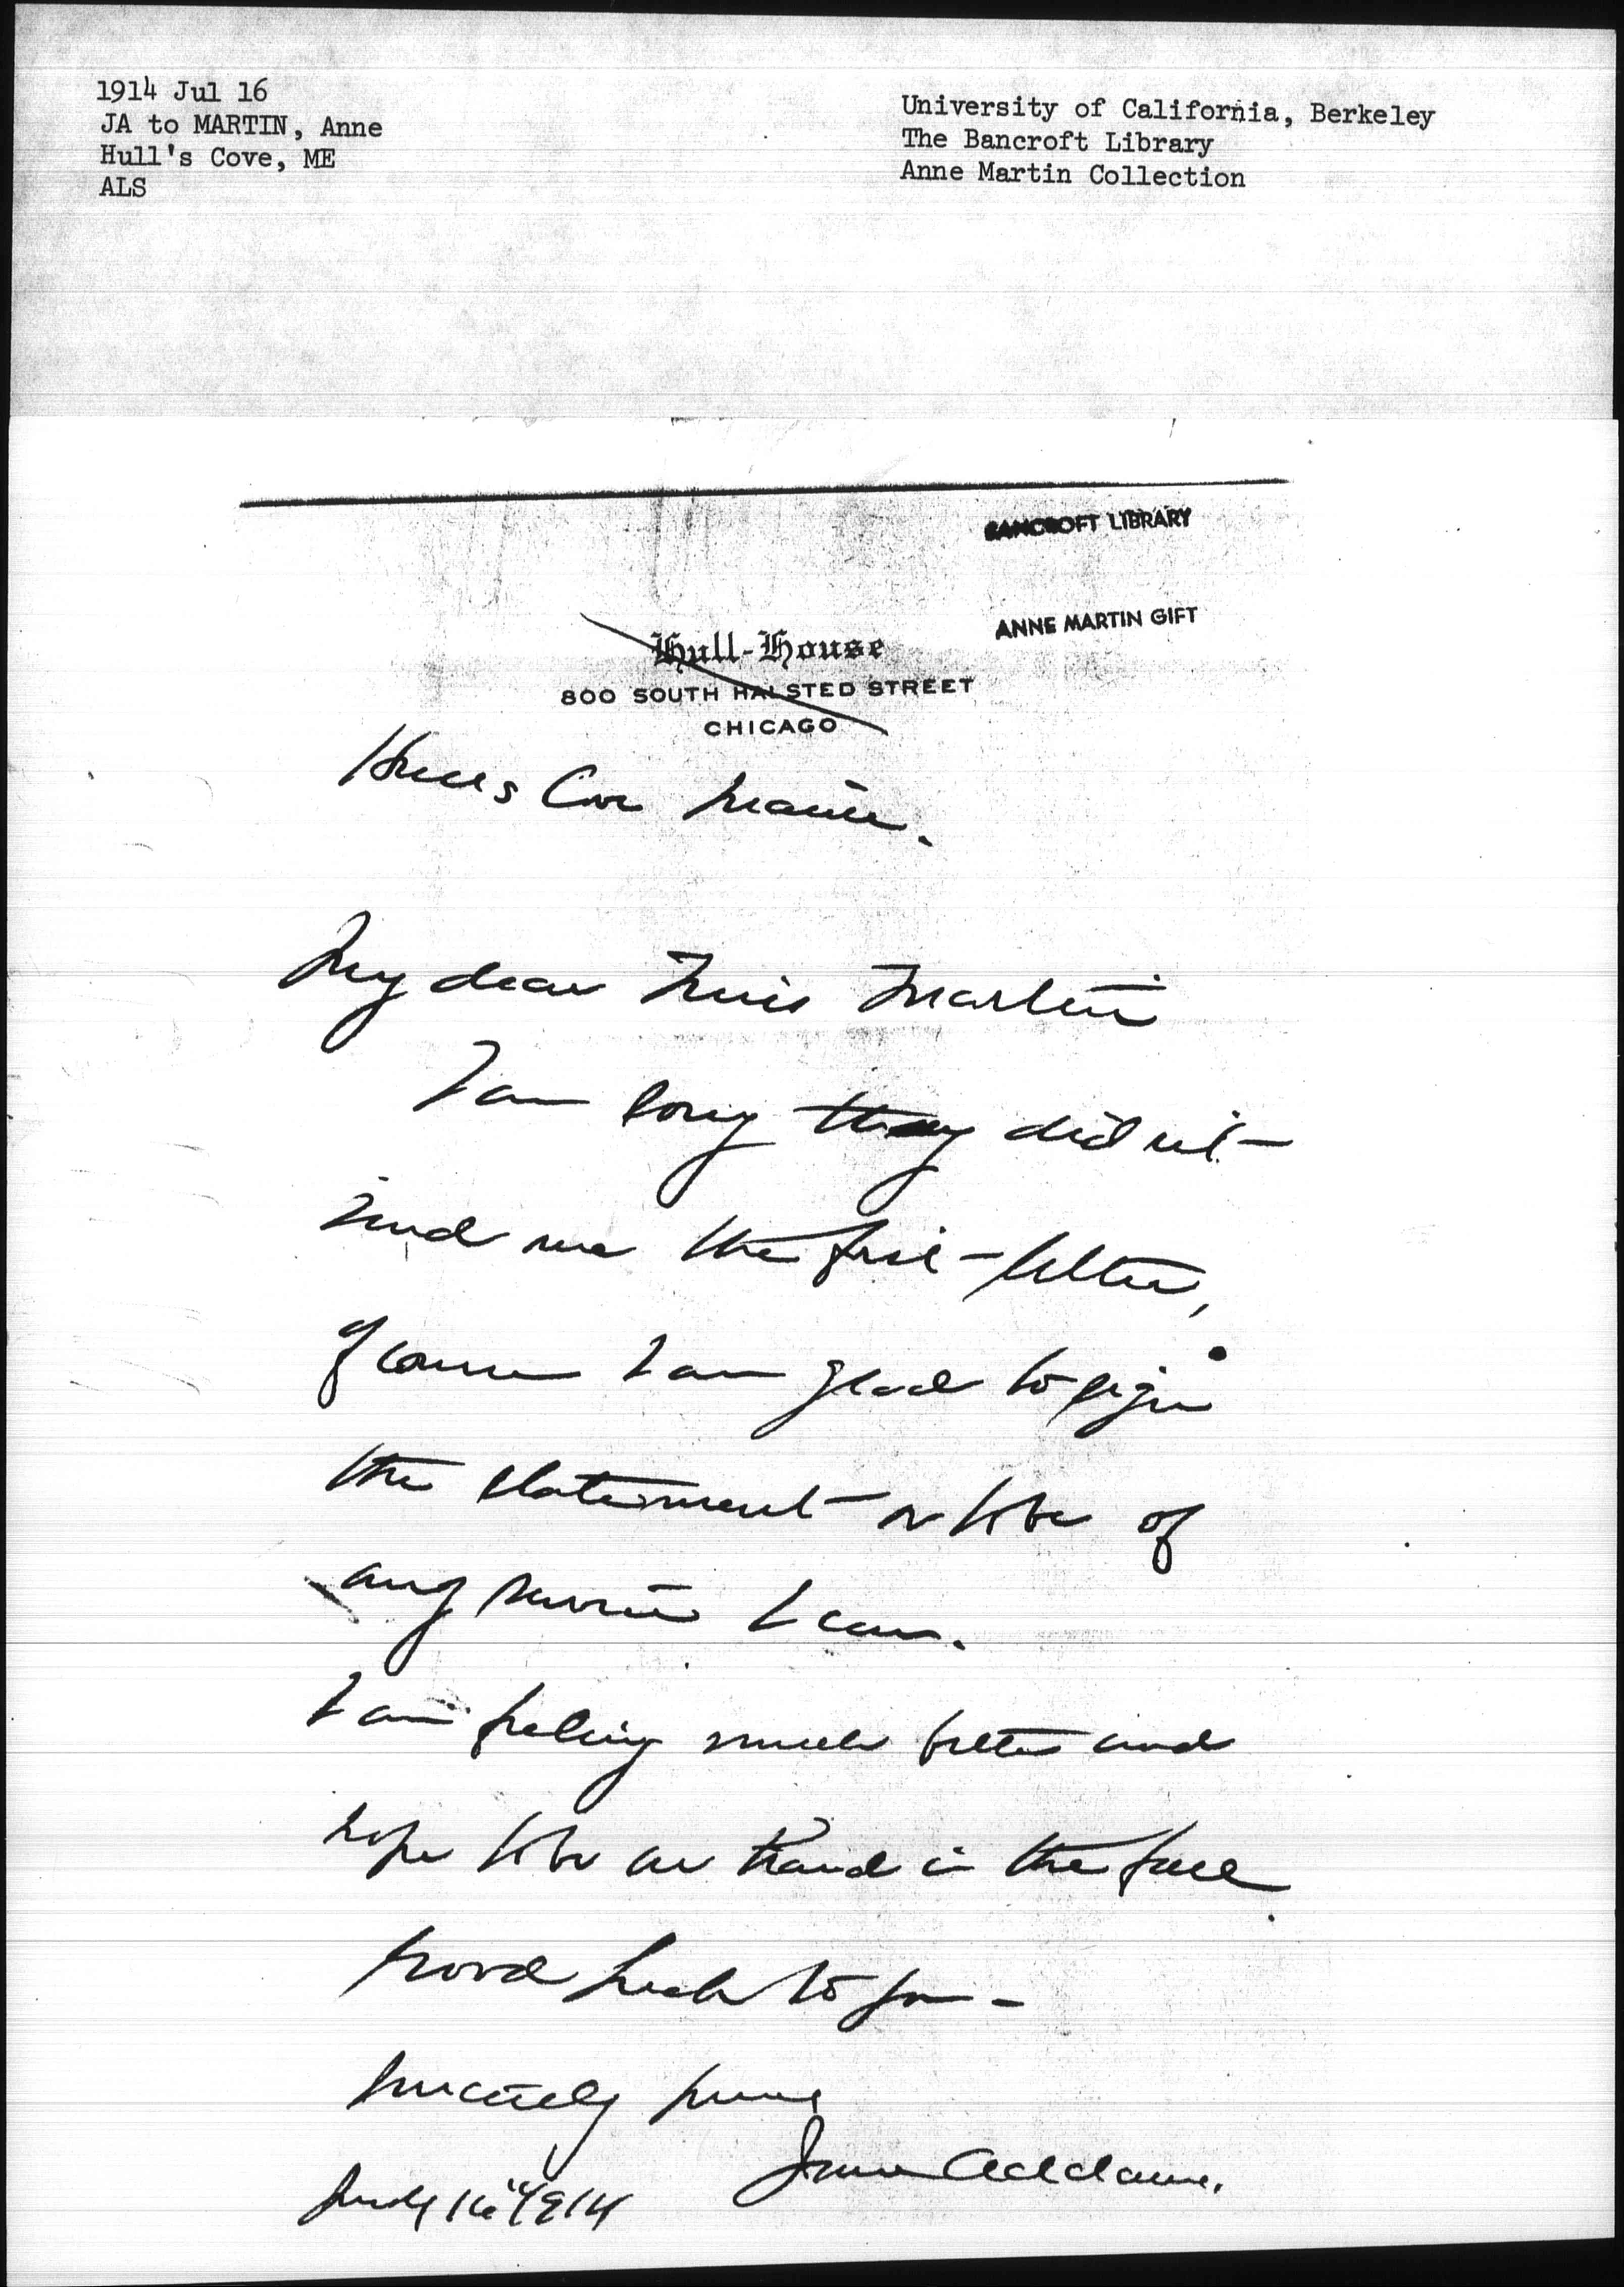 1914 Jul 16
JA to MARTIN, Anne
Hull's Cove, ME
ALS
University of California, Berkeley
The Bancroft Library
Anne Martin Collection
BANCROFT LIBRARY
ANNE MARTIN GIFT
Hull-House
800 SOUTH HALSTED STREET
CHICAGO
Hulls Cove Maine.
My dear Miss Martin
I am sorry they did not
send me the first letter,
of course I am glad to sign
the statement or to be of
any service I can.
I am feeling much better and
hope to be on hand in the fall.
Good luck to you -
Sincerely yours
Jane Addams.
July 16" 1914